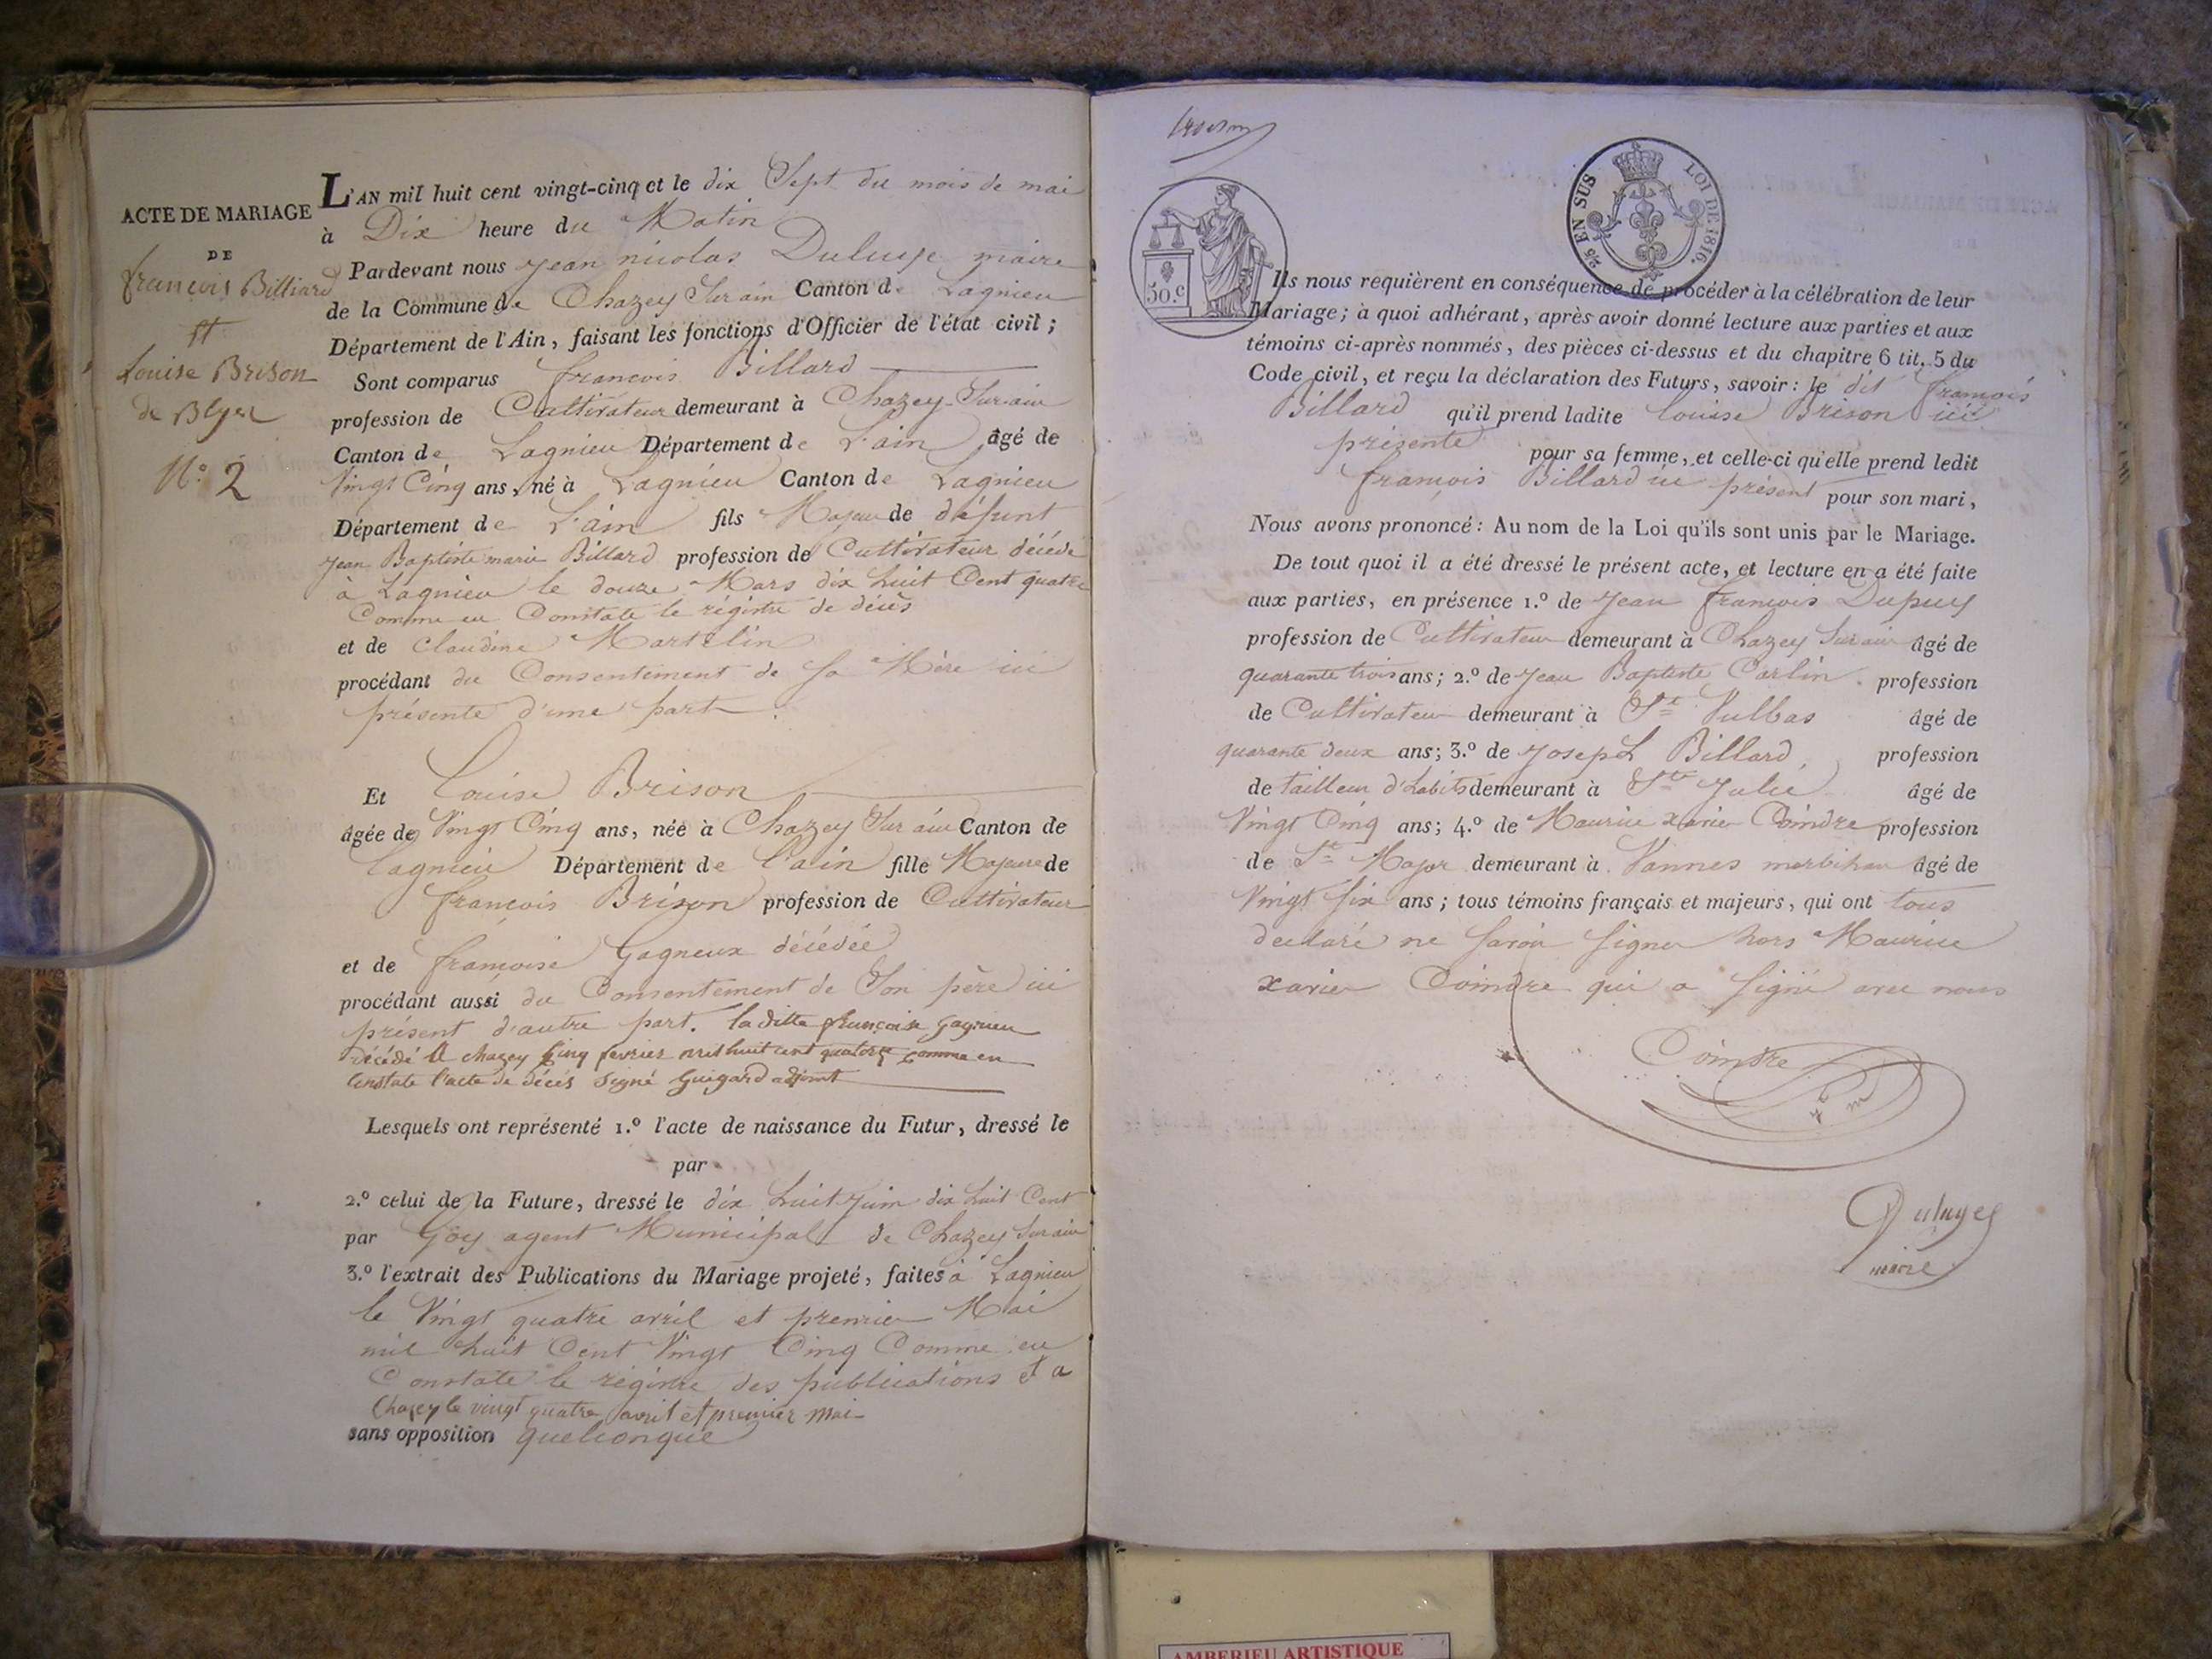 ACTE DE MARIAGE
DE
françois Billiard
et
Louise Brison
de Blyes
N.o 2
L'AN mil huit cent vingt-cinq et le dix Sept du mois de mai
à Dix heure du Matin
Pardevant nous jean nicolas maire
de la Commune de Chazey Sur ain Canton de Lagnieu
Département de l'Ain, faisant les fonctions d'Officier de l'état civil;
Sont comparus françois Billard
profession de Cultivateur demeurant à Chazey Sur ain
Canton de Lagnieu Département de L'ain âgé de
Vingt Cinq ans, né à Lagnieu Canton de Lagnieu
Département de L'ain fils Majeur de défunt
jean Baptiste marie Billard profession de Cultivateur décédé
à Lagnieu le douze Mars dix huit Cent quatre
Comme en Constate le régistre de décès
et de Claudine Martelin
procédant du Consentement de Sa Mère ici
présente d'une part.
Et Louise Brison
âgée de Vingt Cinq ans, née à Chazey Sur ain Canton de
Lagnieu Département de L'ain fille Majeure de
françois Brison profession de Cultivateur
et de françoise Gagneux décédée
procédant aussi du Consentement de Son père ici
présent d'autre part. laditte françoise gagneu
décédé A chazey Cinq fevrier mil huit cent quatorze comme en
Constate l'acte de décés signé Guigard adjoint
Lesquels ont représenté 1.o l'acte de naissance du Futur, dressé le
par
2.o celui de la Future, dressé le dix huit juin dix huit Cent
par Goy agent Municipal de Chazey Sur ain
3.o l'extrait des Publications du Mariage projeté, faites à Lagnieu
le Vingt quatre avril et premier Mai
mil huit Cent Vingt Cinq Comme en
Constate le régistre des publications et a
Chazey le vingt quatre avril et premier mai
sans opposition quelconque
50.c
25 EN SUS
LOI DE 1816.
Ils nous requièrent en conséquence de procéder à la célébration de leur
Mariage; à quoi adhérant, après avoir donné lecture aux parties et aux
témoins ci-après nommés, des pièces ci-dessus et du chapitre 6 tit. 5 du
Code civil, et reçu la déclaration des Futurs, savoir: le dit françois
Billard qu'il prend ladite Louise Brison ici
présente pour sa femme, et celle-ci qu'elle prend ledit
françois Billard ici présent pour son mari,
Nous avons prononcé: Au nom de la Loi qu'ils sont unis par le Mariage.
De tout quoi il a été dressé le présent acte, et lecture en a été faite
aux parties, en présence 1.o de jean françois Dupuy
profession de Cultivateur demeurant à Chazey Sur ain âgé de
quarante trois ans; 2.o de jean Baptiste Carlin profession
de Cultivateur demeurant à St Vulbas âgé de
quarante deux ans; 3.o de joseph Billard, profession
de tailleur d'habits demeurant à Ste Julie âgé de
Vingt Cinq ans; 4.o de Maurice xavier Cointre profession
de St Major demeurant à Vannes morbihan âgé de
Vingt Six ans; tous témoins français et majeurs, qui ont tous
declaré ne Savoir Signer hors Maurice
xavier Cointre qui a Signé avec nous
Cointre
maire
AMBERIEU ARTISTIQUE